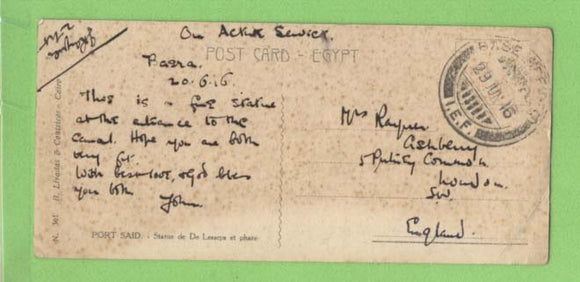 On Active Service.
POST CARD - EGYPT
Basra.
20.6.16
This is a fine statue
at the entrance to the
canal. Hope you are both
very fit.
With best love, & God bless
you both
John
Mrs Rayner
Ashberry
5 Putney Common
London.
SW.
England.
BASE
29 JUN 16
I.E.F
PORT SAID. - Statue de De Lesseps et phare
N. 501 B. Livadas & Coutsicos - Cairo